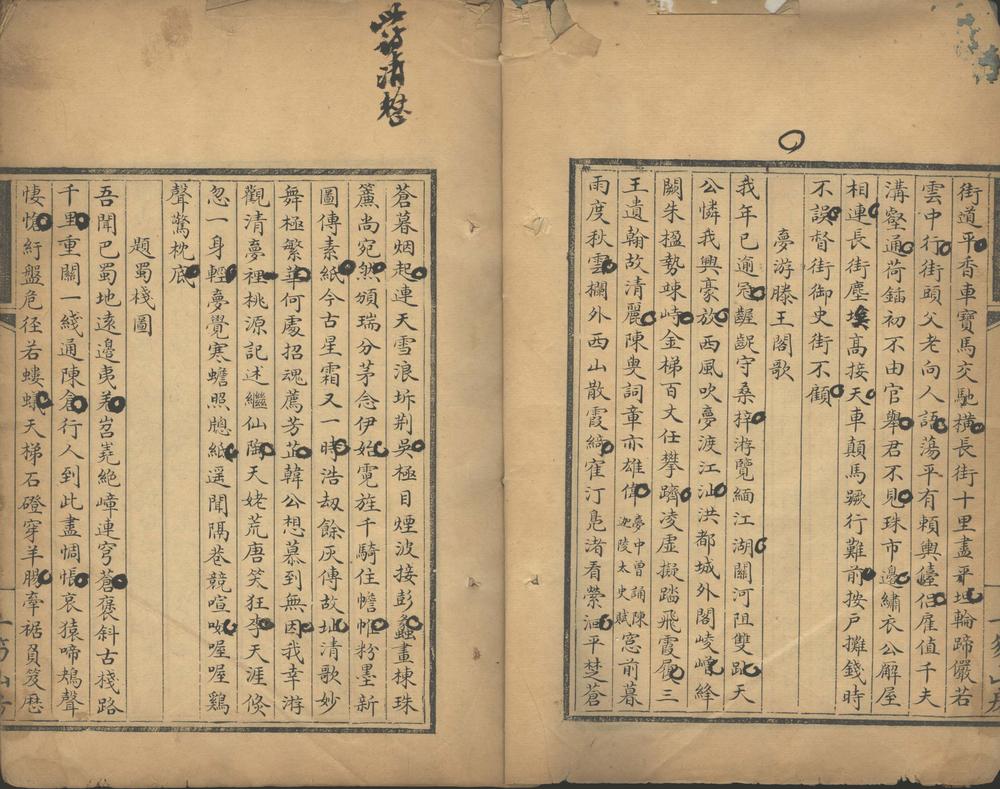 街道平香車寶馬交馳橫長街十里盡平坦輪蹄儼若
雲中行街頭父老向人語蕩平有賴輿儓侶雇值千夫
溝壑通荷鍤初不由官舉君不見珠市邊繡衣公廨屋
相連長街塵埃高接天車顛馬蹶行難前按戶攤錢時
不誤督街御史街不顧
夢游滕王閣歌
我年已逾冠齷齪守桑梓游覽緬江湖關河阻雙趾天
公憐我興豪放西風吹夢渡江汕洪都城外閣崚嶒絳
闕朱楹勢竦峙金梯百丈任攀躋凌虛擬踏飛霞履三
王遺翰故清麗陳叟詞章亦雄偉夢中曾誦陳迦陵太史賦窓前暮
雨度秋雲欄外西山散霞綺寉汀鳧渚看縈洄平楚蒼
清整
蒼暮烟起連天雪浪坼荆吳極目煙波接彭蠡畫棟珠
簾尚宛然頒瑞分茅念伊始霓旌千騎住幨帷粉墨新
圖傳素紙今古星霜又一時浩刼餘灰傳故址清歌妙
舞極繁華何處招魂薦芳芷韓公想慕到無因我幸游
觀清夢裡桃源記述繼仙陶天姥荒唐笑狂李天涯倏
忽一身輕夢覺寒蟾照牕紙遥聞隔巷競喧呶喔喔鷄
聲驚枕底
題蜀棧圖
吾聞巴蜀地遠邊夷羌岧嶤絶嶂連穹蒼褒斜古棧路
千里重關一綫通陳倉行人到此盡惆悵哀猿啼鴂聲
悽愴紆盤危徑若螻蟻天梯石磴穿羊腸牽裾負笈歴